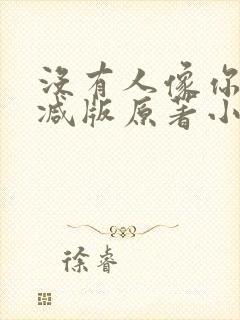 没有人像你
减版原著小
徐睿